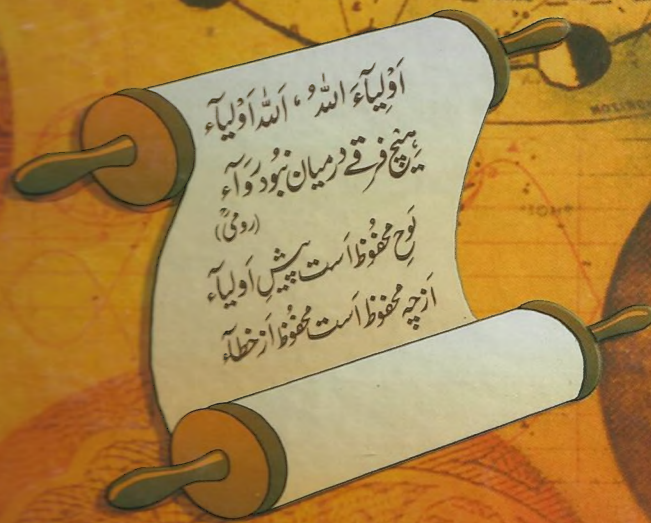 اَوْلِیآءَ اللہُ ، اَللہ اَوْلیآء
ہِیْچ فرقے درمیان نبُود رَوَآء
(رومیؒ)
لَوح محفُوظ اَست پیشِ اَولیآء
اَزچہ محفوظ اَست محفُوظ اَز خطآء